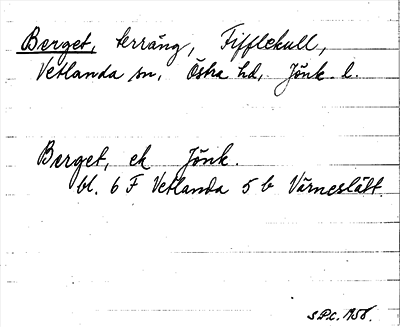 Berget, terräng, Fifflekull,
Vetlanda sn, Östra hd, Jönk. l.
Berget, ek Jönk.
bl. 6 F Vetlanda 5 b Värneslätt.